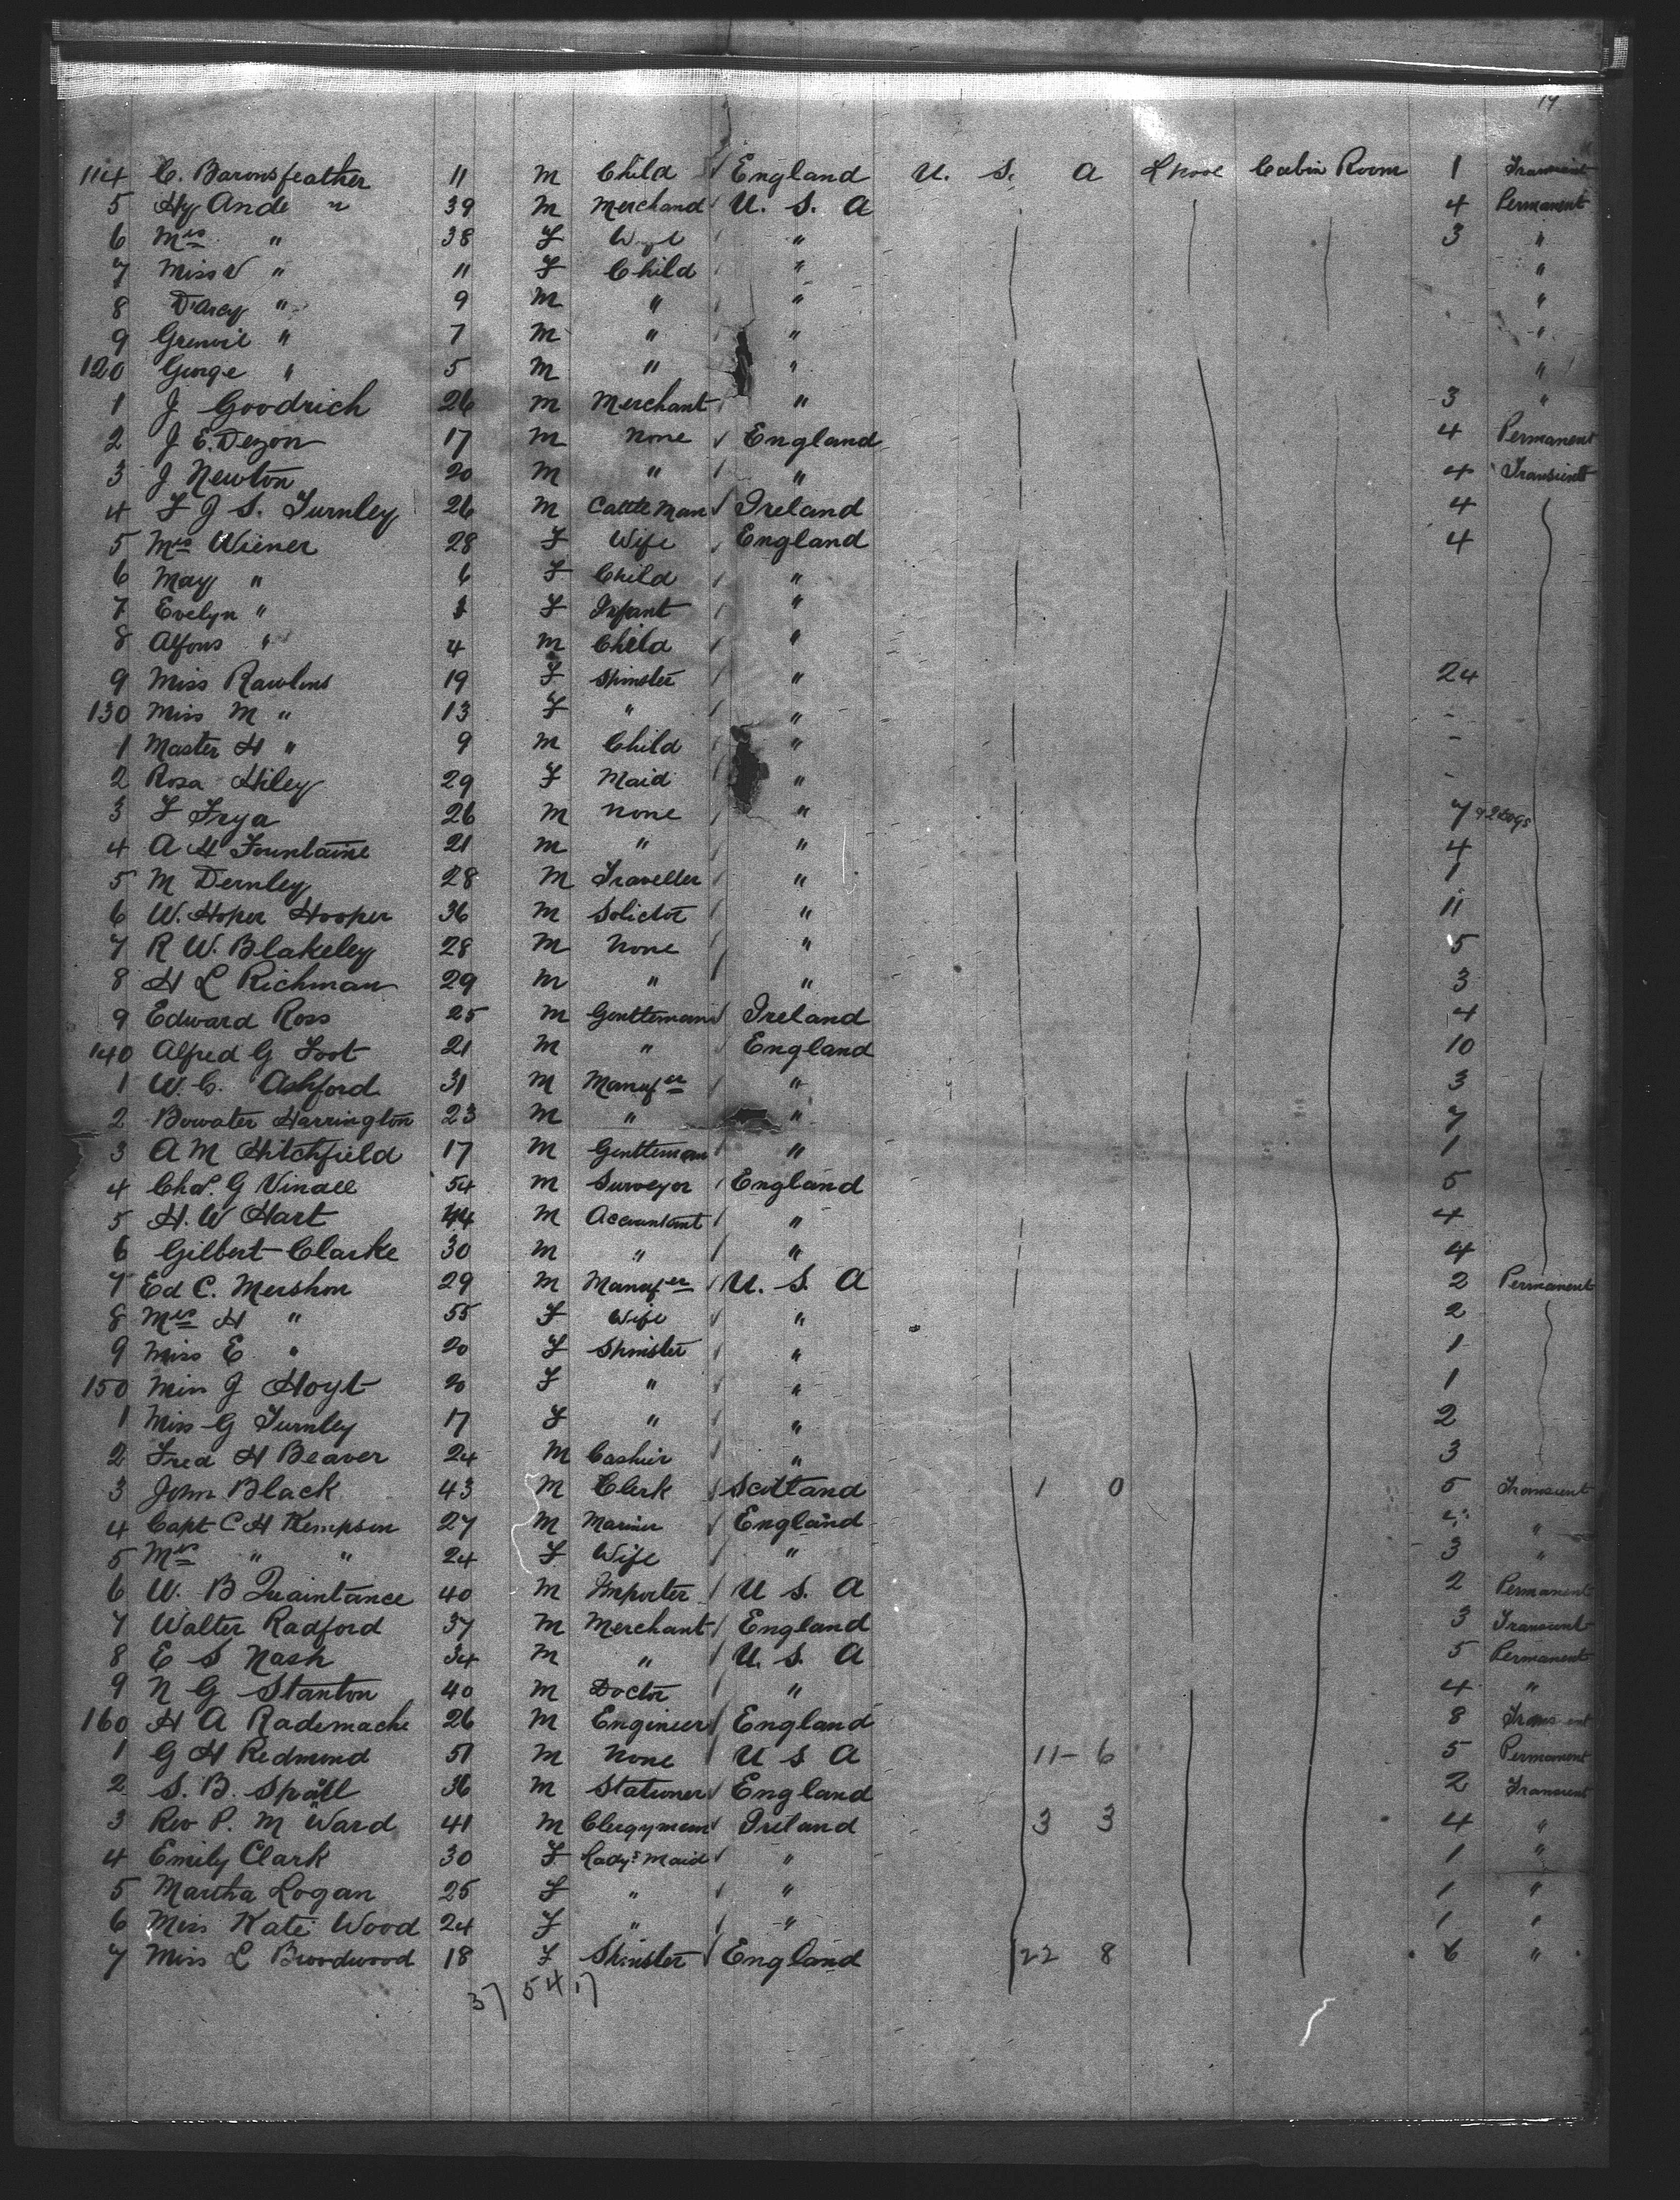 14
114 C. Baronsfeather 11 M Child England U. S. A L'pool Cabin Room 1 Transient
5 Hy Ande " 39 M Merchand U. S. A 4 Permanent
6 Mrs " 38 F Wife " 3 "
7 Miss V " 11 F Child " "
8 D'Arcy " 9 M " " "
9 " 7 M " " "
120 George " 5 M " " "
1 J Goodrich 26 M Merchant " 3 "
2 J E. Dezon 17 M None England 4 Permanent
3 J Newton 20 M " " 4 Transient
4 F J S. Turnley 26 M Cattle Man Ireland 4
5 Mrs Wiener 28 F Wife England 4
6 May " 6 F Child "
7 Evelyn " F Infant "
8 Alfons " 4 M Child "
9 Miss Rawlins 19 F Spinster " 24
130 Miss M " 13 F " " -
1 Master H " 9 M Child " -
2 Rosa Hiley 29 F Maid " -
3 F Frya 26 M None " 7 & 2 Dogs
4 A H Fountaine 21 M " " 4
5 M Dernley 28 M Traveller " 1
6 W. Hoper Hooper 36 M Solictor " 11
7 R W. Blakeley 28 M None " 5
8 H L Richman 29 M " " 3
9 Edward Ross 25 M Gentteman Ireland 4
140 Alfred G Foot 21 M " England 10
1 W. C. Ashford 31 M Manufer " 3
2 Bowater Harrington 23 M " " 7
3 A M Hitchfield 17 M Gentteman " 1
4 Chas. G Vinall 54 M Surveyor England 5
5 H. W Hart 44 M Accountant " 4
6 Gilbert Clarke 30 M " " 4
7 Ed C. Mershon 29 M Manufer U. S. A 2 Permanent
8 Mrs H " 55 F Wife " 2
9 Miss E " 20 F Spinster " 1
150 Miss J Hoyt 20 F " " 1
1 Miss G Turnley 17 F " " 2
2 Fred H Beaver 24 M Cashier " 3
3 John Black 43 M Clerk Scotland 1 0 5 Transient
4 Capt C H Kempson 27 M Mariner England "
5 Mrs " " 24 F Wife " 3 "
6 W. B Quaintance 40 M Importer U S. A 2 Permanent
7 Walter Radford 37 M Merchant England 3 Transient
8 E S Nash 34 M " U. S. A 5 Permanent
9 N G Stanton 40 M Doctor " 4 "
160 H A Rademache 26 M Engineer England 8 Transient
1 G H Redmond 51 M None U S A 11 - 6 5 Permanent
2 S. B. Spåll 36 M Stationer England 2 Transient
3 Rev P. M Ward 41 M Clergyman Ireland 3 3 4 "
4 Emily Clark 30 F Lady's Maid " 1 "
5 Martha Logan 25 F " " 1 "
6 Miss Kate Wood 24 F " " 1 "
7 Miss L Broodwood 18 F Spinster England 22 8 6 "
37 54 17